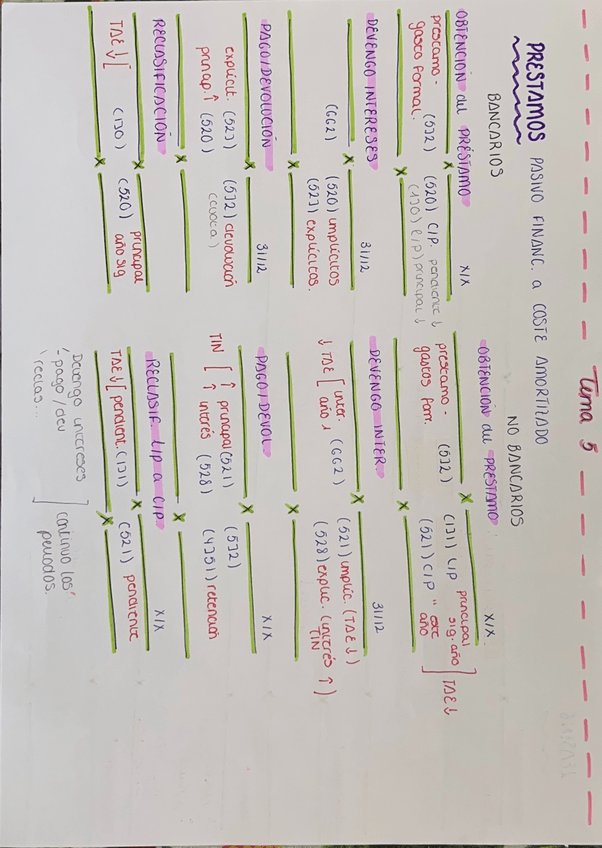 Tema 5
PRÉSTAMOS PASIVO FINANC. a COSTE AMORTIZADO
BANCARIOS
OBTENCIÓN del PRÉSTAMO
X/X
prestamo - (532)
gasto formal.
(520) C/P. pendiente ↓
(170) L/P) principal ↓
DEVENGO INTERESES
31/12
(662)
(520) implícitos
(527) explícitos.
PAGO/DEVOLUCIÓN
31/12
explicit. (527)
princp. ↑ (520)
(532) devolución
(cuota)
RECLASIFICACIÓN
TAE ↓ [ (170)
(520) principal
año sig
NO BANCARIOS
OBTENCIÓN del PRESTAMO
X/X
prestamo - (532)
gastos form.
(171) L/P principal
sig. año
(521) C/P " este
año
] TAE ↓
DEVENGO INTER.
31/12
↓ TAE [ inter. (662)
año 1
(521) implic. (TAE ↓)
(528) explic. (interés ↑)
TIN
PAGO/DEVOL.
X/X
TIN [ ↑ principal (521)
↑ interés (528)
(532)
(4751) retención
RECLASIF. L/P a C/P
X/X
TAE ↓ [ pendient. (171)
(521) pendiente
Devengo intereses
- pago / dev
reclas...
] continuo los
periodos.